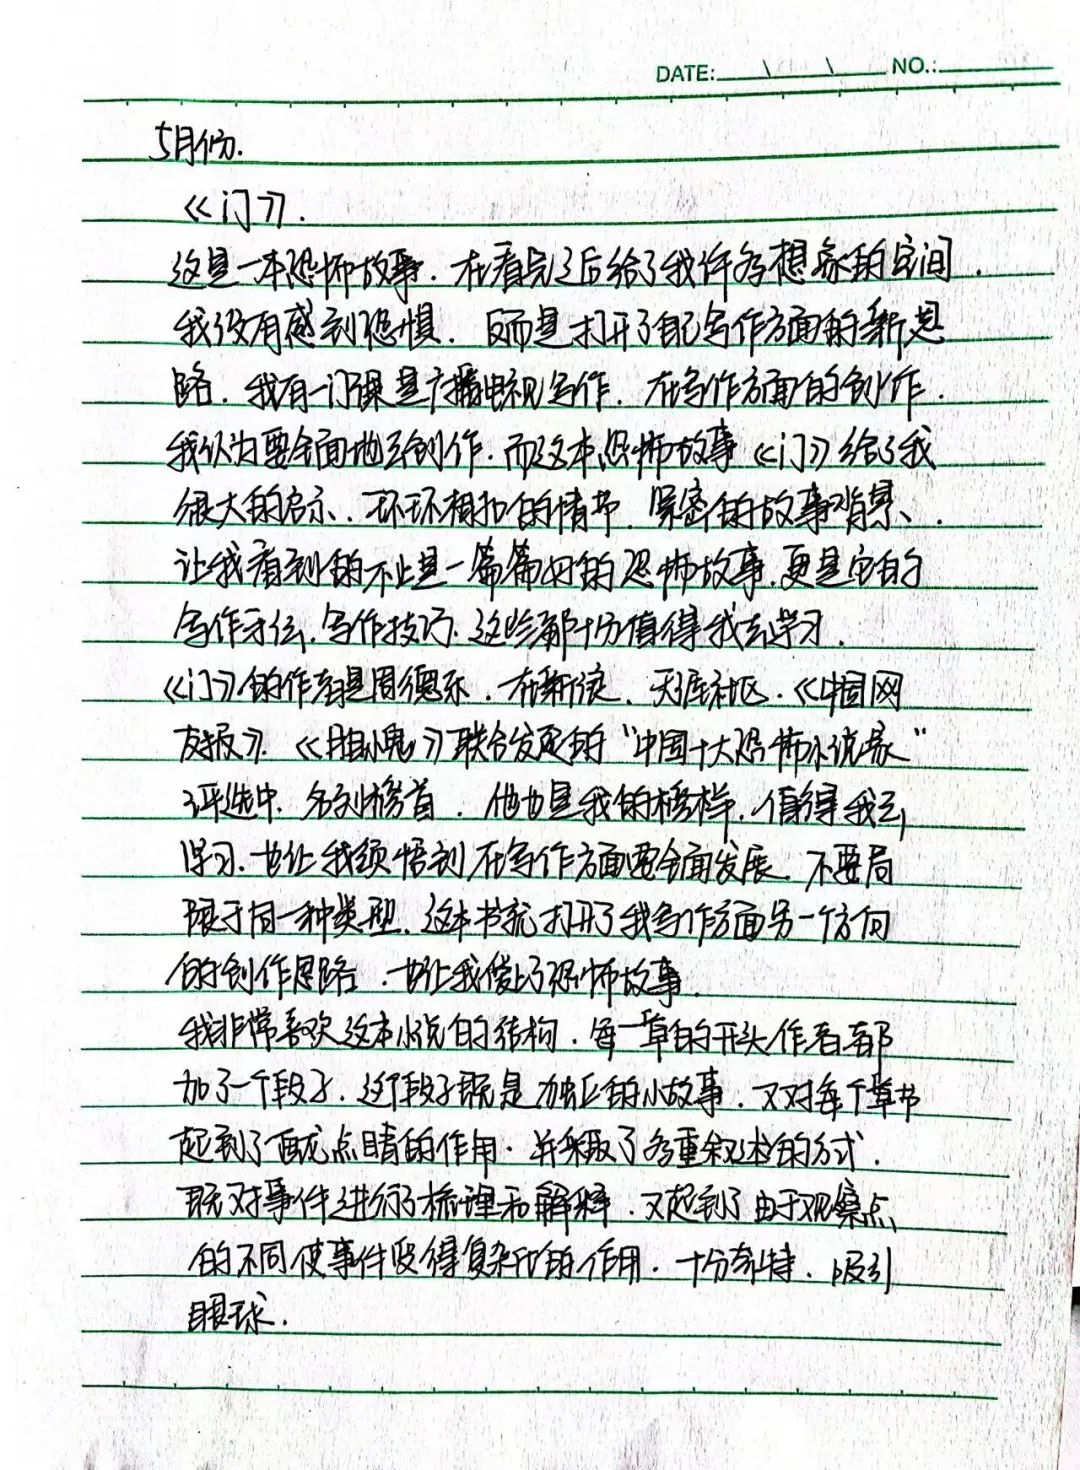 DATE: \ \ NO.:
5月份.
《门》.
这是一本恐怖故事.在看完之后给了我许多想象的空间.
我没有感到恐惧.反而是打开了自己写作方面的新思
路.我有一门课是广播电视写作.在写作方面的创作.
我认为要全面地去创作.而这本恐怖故事《门》给了我
很大的启示、环环相扣的情节.紧密的故事背景、.
让我看到的不止是一篇篇好的恐怖故事.更是它的
写作手法,写作技巧.这些都十分值得我去学习.
《门》的作者是周德东.在新浪、天涯社区.《中国网
友报》.《胆小鬼》联合发起的“中国十大恐怖小说家”
评选中.名列榜首.他也是我的榜样.值得我去
学习.也让我领悟到在写作方面要全面发展.不要局
限于同一种类型.这本书就打开了我写作方面另一个方向
的创作思路.也让我爱上了恐怖故事.
我非常喜欢这本小说的结构.每一章的开头作者都
加了一个段子.这个段子既是独立的小故事.又对每个章节
起到了画龙点睛的作用.并采取了多重叙述的方式.
既对事件进行了梳理和解释.又起到了由于观察点
的不同使事件变得复杂化的作用.十分奇特.吸引
眼球.